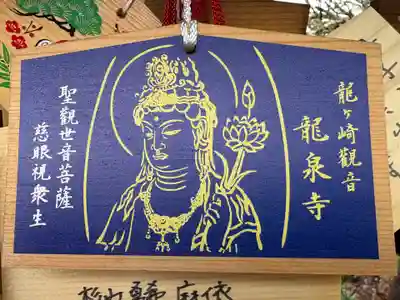 龍ヶ崎觀音
龍泉寺
聖觀世音菩薩
慈眼視衆生